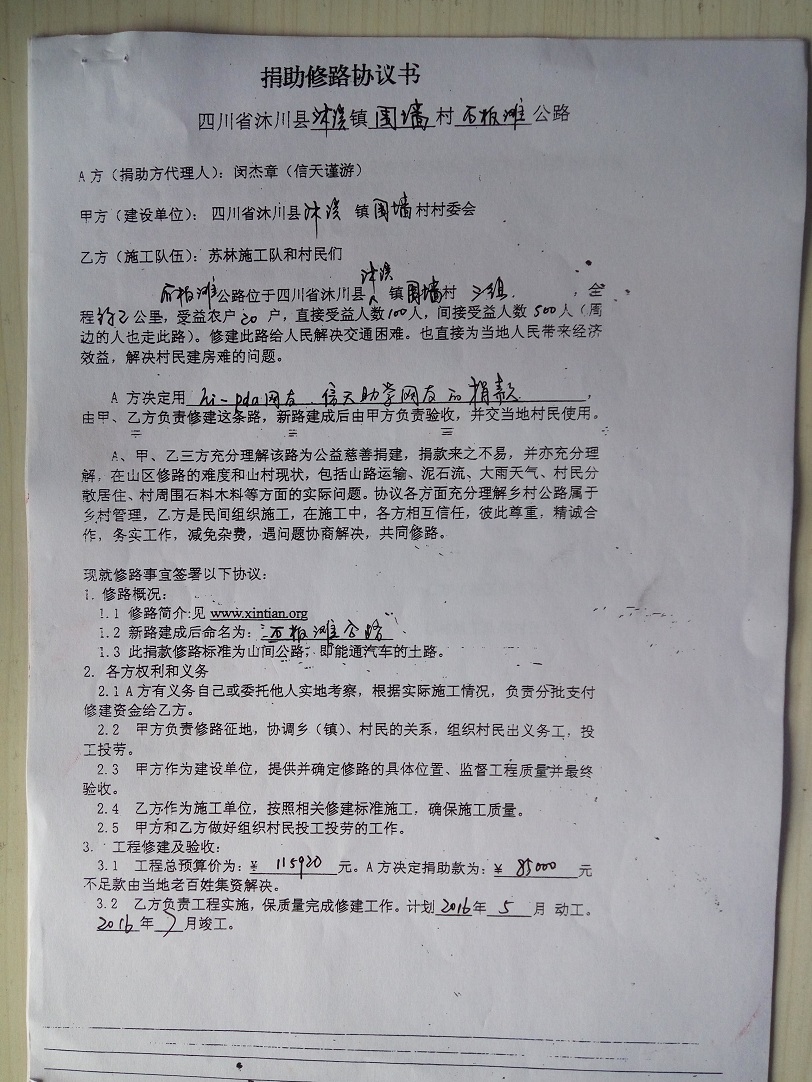 捐助修路协议书
四川省沐川县沐溪镇围墙村石板滩公路
A方（捐助方代理人）：闵杰章（信天谨游）
甲方（建设单位）：四川省沐川县沐溪 镇围墙村村委会
乙方（施工队伍）：苏林施工队和村民们
石板滩公路位于四川省沐川县沐溪镇围墙村 组，全
程约2公里，受益农户20户，直接受益人数100人，间接受益人数500人（周
边的人也走此路）。修建此路给人民解决交通困难。也直接为当地人民带来经济
效益，解决村民建房难的问题。
A 方决定用hi-pda网友、信天助学网友的捐款，
由甲、乙方负责修建这条路，新路建成后由甲方负责验收，并交当地村民使用。
A、甲、乙三方充分理解该路为公益慈善捐建，捐款来之不易，并亦充分理
解，在山区修路的难度和山村现状，包括山路运输、泥石流、大雨天气、村民分
散居住、村周围石料木料等方面的实际问题。协议各方面充分理解乡村公路属于
乡村管理，乙方是民间组织施工，在施工中，各方相互信任，彼此尊重，精诚合
作，务实工作，减免杂费，遇问题协商解决，共同修路。
现就修路事宜签署以下协议：
1. 修路概况：
1.1 修路简介:见 www.xintian.org
1.2 新路建成后命名为：石板滩公路
1.3 此捐款修路标准为山间公路，即能通汽车的土路。
2. 各方权利和义务
2.1 A方有义务自己或委托他人实地考察，根据实际施工情况，负责分批支付
修建资金给乙方。
2.2 甲方负责修路征地，协调乡（镇）、村民的关系，组织村民出义务工，投
工投劳。
2.3 甲方作为建设单位，提供并确定修路的具体位置、监督工程质量并最终
验收。
2.4 乙方作为施工单位，按照相关修建标准施工，确保施工质量。
2.5 甲方和乙方做好组织村民投工投劳的工作。
3. 工程修建及验收：
3.1 工程总预算价为：￥ 115920 元。A方决定捐助款为：￥ 85000 元
不足款由当地老百姓集资解决。
3.2 乙方负责工程实施，保质量完成修建工作。计划2016年 5 月 动工。
2016年 7 月竣工。